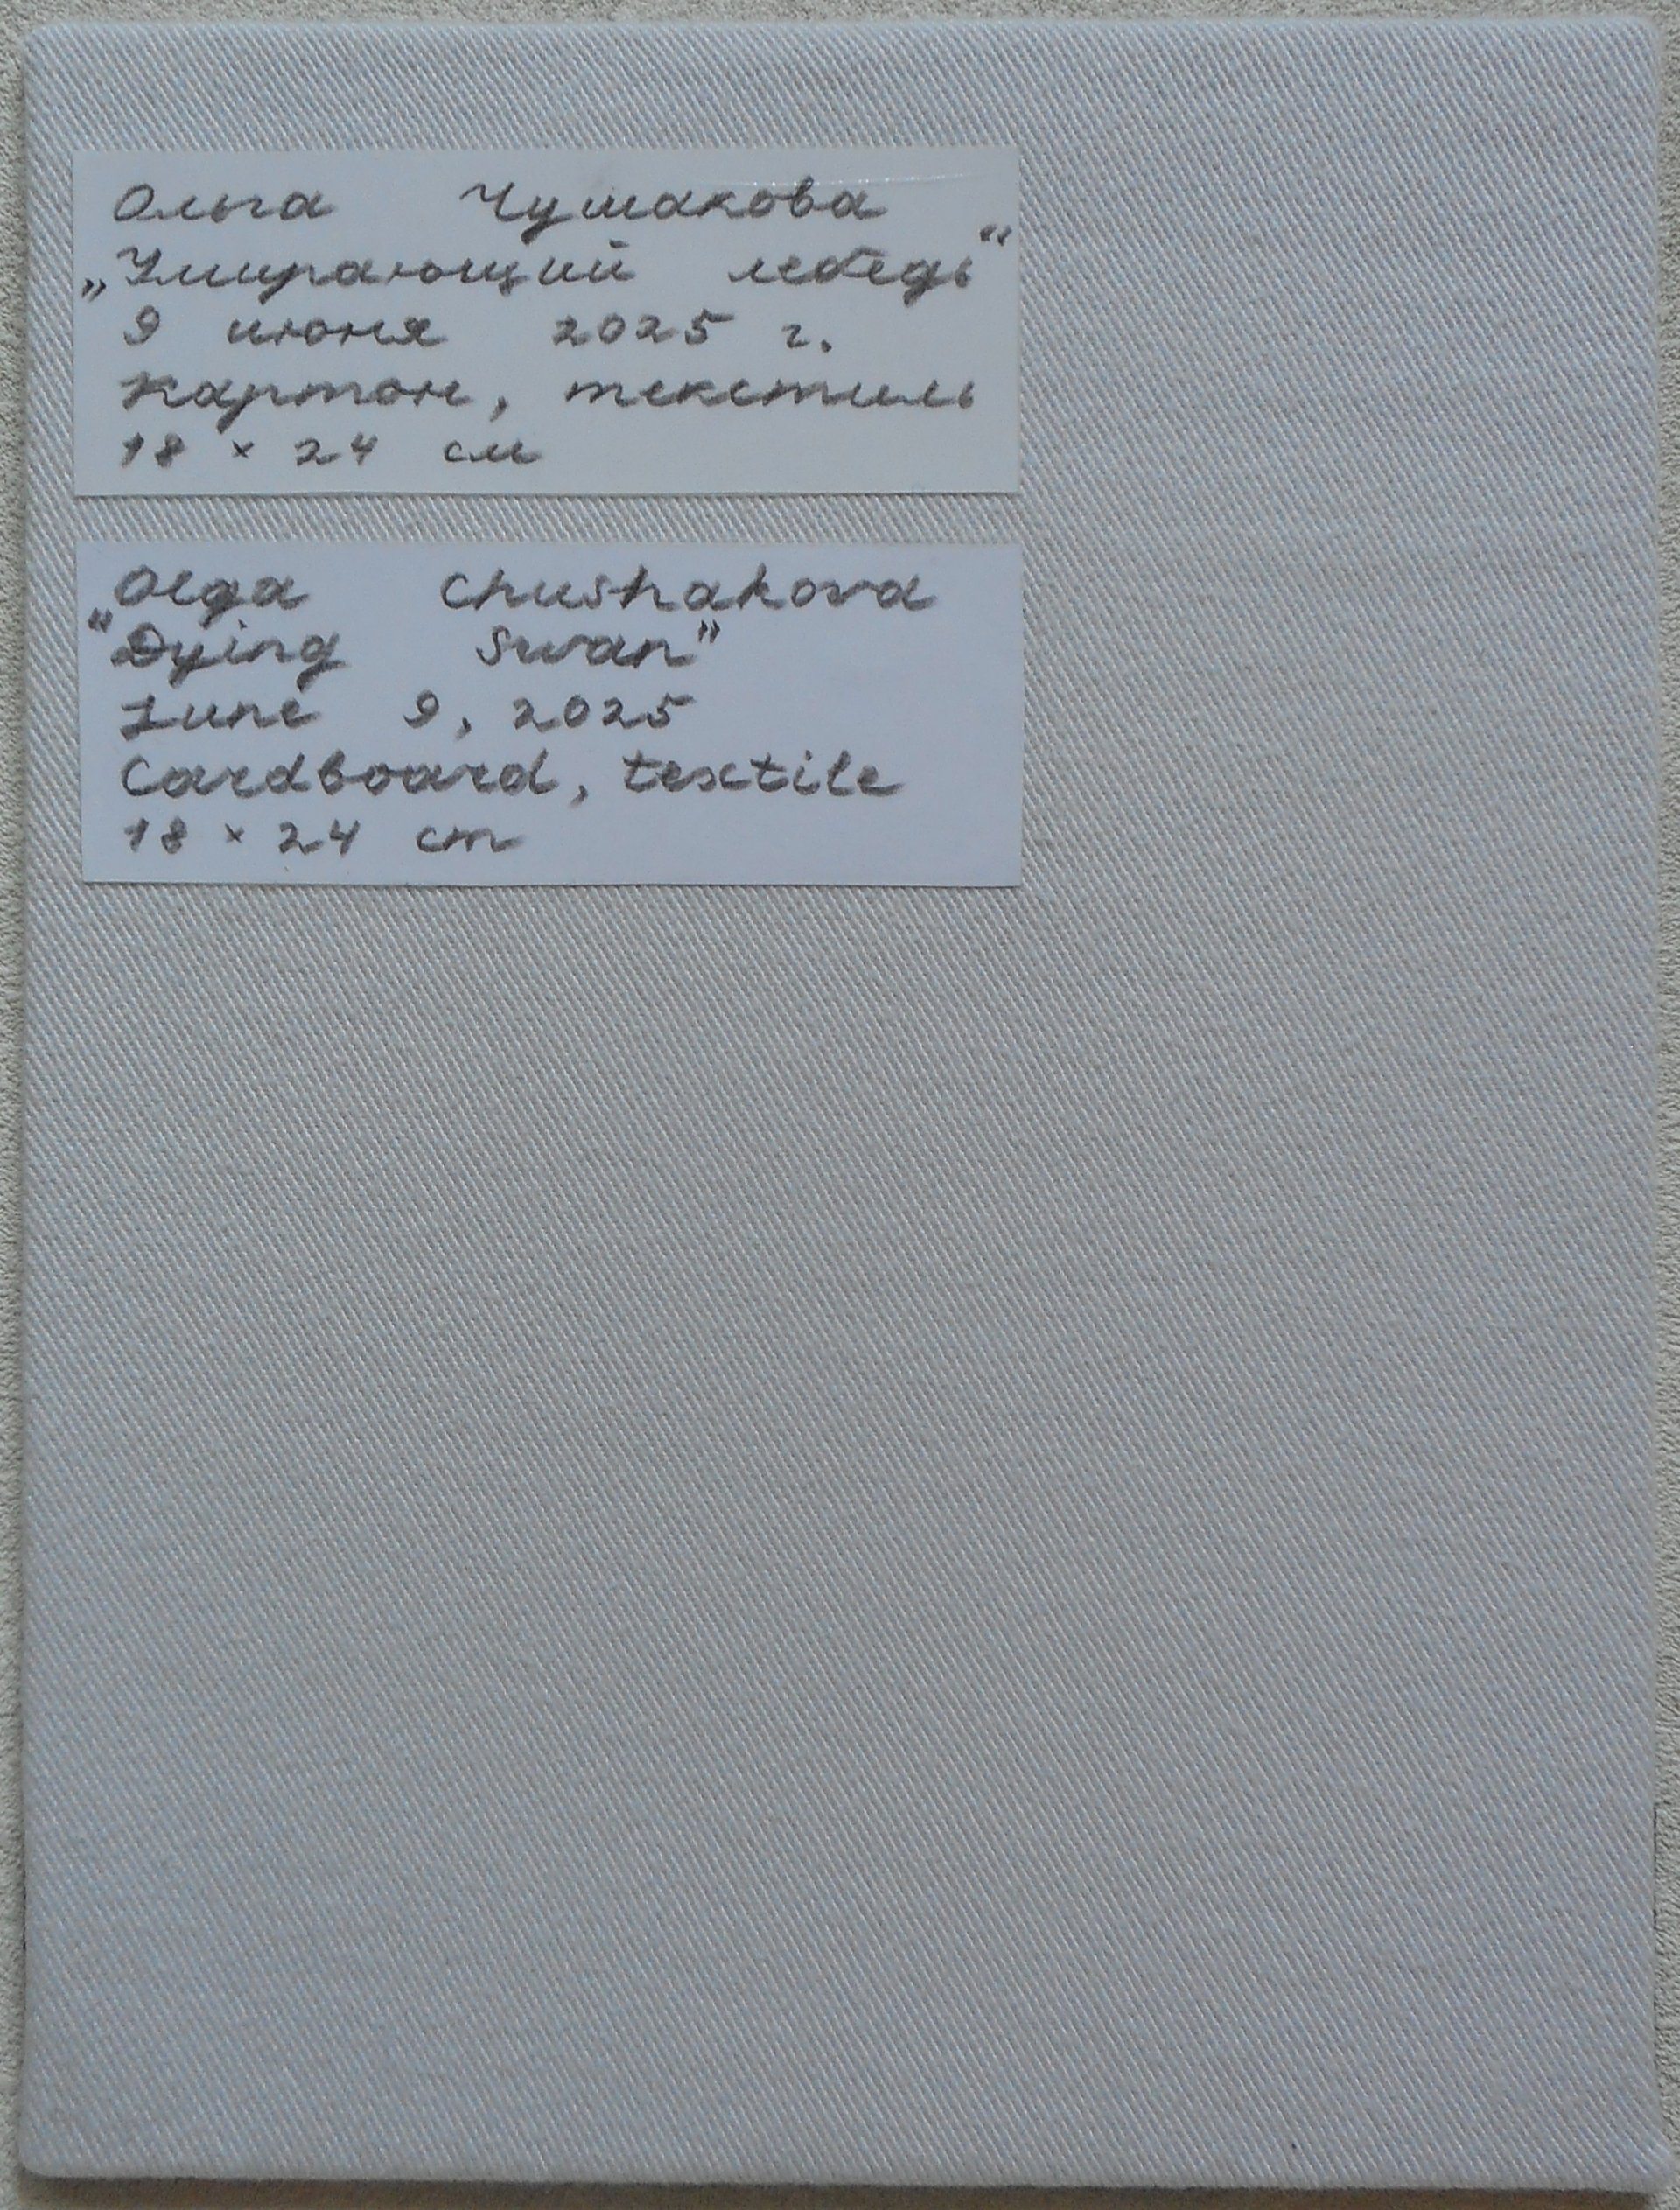 Ольга Чушакова
„Умирающий лебедь“
9 июня 2025 г.
Картон, текстиль
18 × 24 см
Olga Chushakova
"Dying Swan"
June 9, 2025
Cardboard, textile
18 × 24 cm